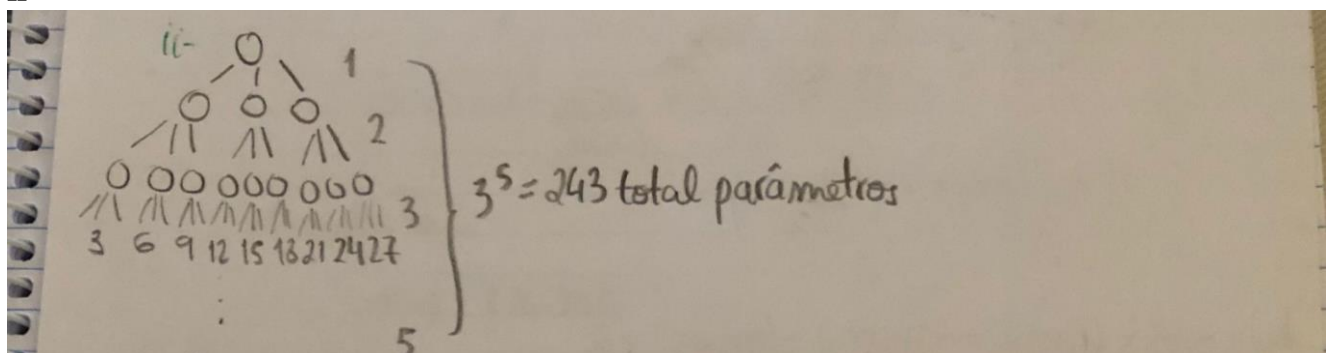 ii-
1
2
3
3 6 9 12 15 18 21 24 27
5
3⁵ = 243 total parâmetros